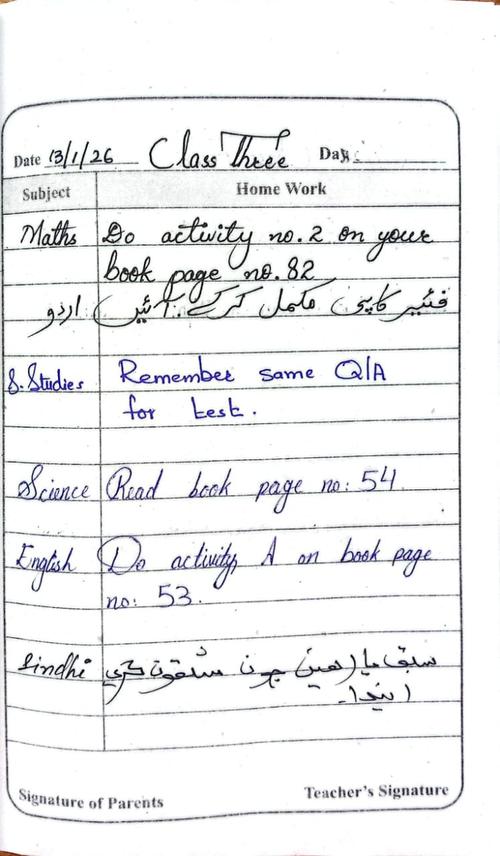 Date 13/1/26 Class Three Day
Subject Home Work
Maths Do activity no.2 on your
book page no.82
اردو فئیر کاپی مکمل کر کے آئیں
S.Studies Remember same Q/A
for test.
Science Read book page no: 54
English Do activity A on book page
no: 53.
Sindhi سبق يا مشقون ڪري
ايندا۔
Signature of Parents Teacher's Signature